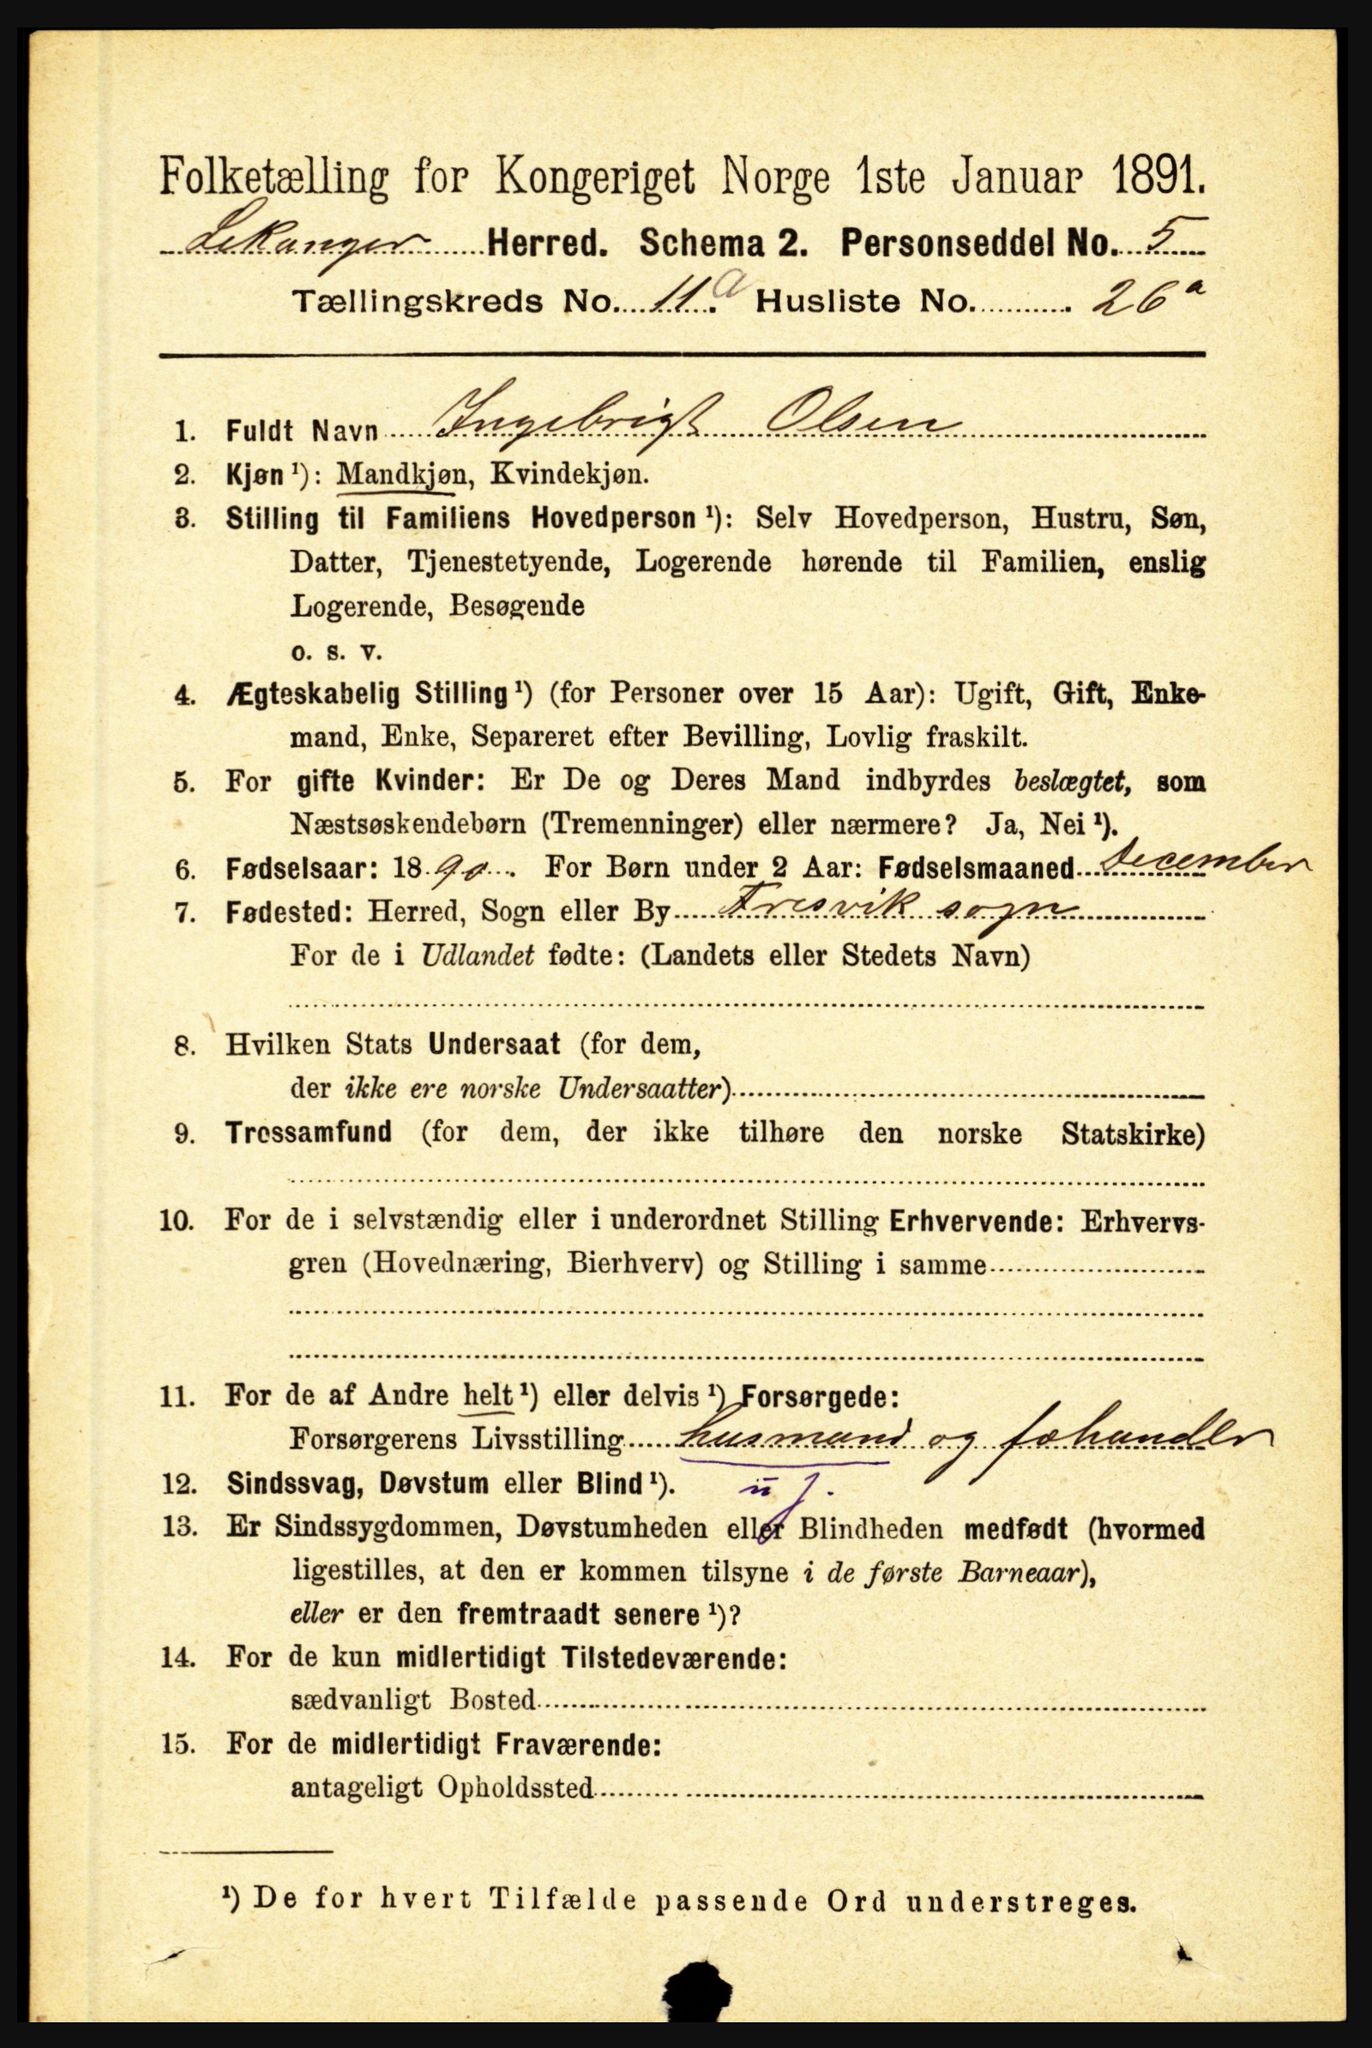 Folketælling for Kongeriget Norge 1ste Januar 1891.
Lekanger Herred. Schema 2. Personseddel No. 5
Tællingskreds No. 11.a Husliste No. 26a
1. Fuldt Navn Ingebrigt Olsen
2. Kjøn¹): Mandkjøn, Kvindekjøn.
3. Stilling til Familiens Hovedperson¹): Selv Hovedperson, Hustru, Søn,
Datter, Tjenestetyende, Logerende hørende til Familien, enslig
Logerende, Besøgende
o. s. v.
4. Ægteskabelig Stilling¹) (for Personer over 15 Aar): Ugift, Gift, Enke-
mand, Enke, Separeret efter Bevilling, Lovlig fraskilt.
5. For gifte Kvinder: Er De og Deres Mand indbyrdes beslægtet, som
Næstsøskendebørn (Tremenninger) eller nærmere? Ja, Nei¹).
6. Fødselsaar: 1890. For Børn under 2 Aar: Fødselsmaaned December
7. Fødested: Herred, Sogn eller By Fresvik sogn
For de i Udlandet fødte: (Landets eller Stedets Navn)
8. Hvilken Stats Undersaat (for dem,
der ikke ere norske Undersaatter)
9. Trossamfund (for dem, der ikke tilhøre den norske Statskirke)
10. For de i selvstændig eller i underordnet Stilling Erhvervende: Erhvervs-
gren (Hovednæring, Bierhverv) og Stilling i samme
11. For de af Andre helt¹) eller delvis¹) Forsørgede:
Forsørgerens Livsstilling husmand og fæhandler
12. Sindssvag, Døvstum eller Blind¹). uj.
13. Er Sindssygdommen, Døvstumheden eller Blindheden medfødt (hvormed
ligestilles, at den er kommen tilsyne i de første Barneaar),
eller er den fremtraadt senere¹)?
14. For de kun midlertidigt Tilstedeværende:
sædvanligt Bosted
15. For de midlertidigt Fraværende:
antageligt Opholdssted
¹) De for hvert Tilfælde passende Ord understreges.